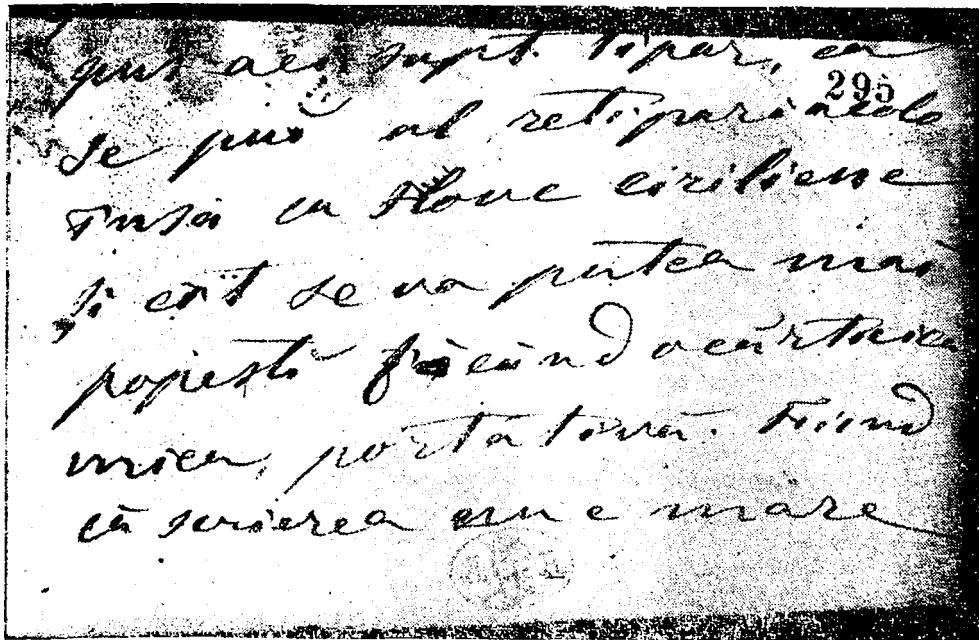 pus aci supt tipar, ca
295
se pui al retipari acolo
însă cu slove ciriliene
și cît se va putea mai
popești făcînd o cărticică
mică, portativă. Fiind
că scrierea nu e mare